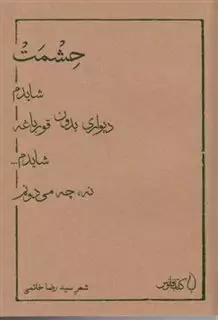 حِشمَت
شایدم
دیواری بدون قورباغه
شایدم...
نه، چه می‌دونم
شعرِ سید رضا خاتمی